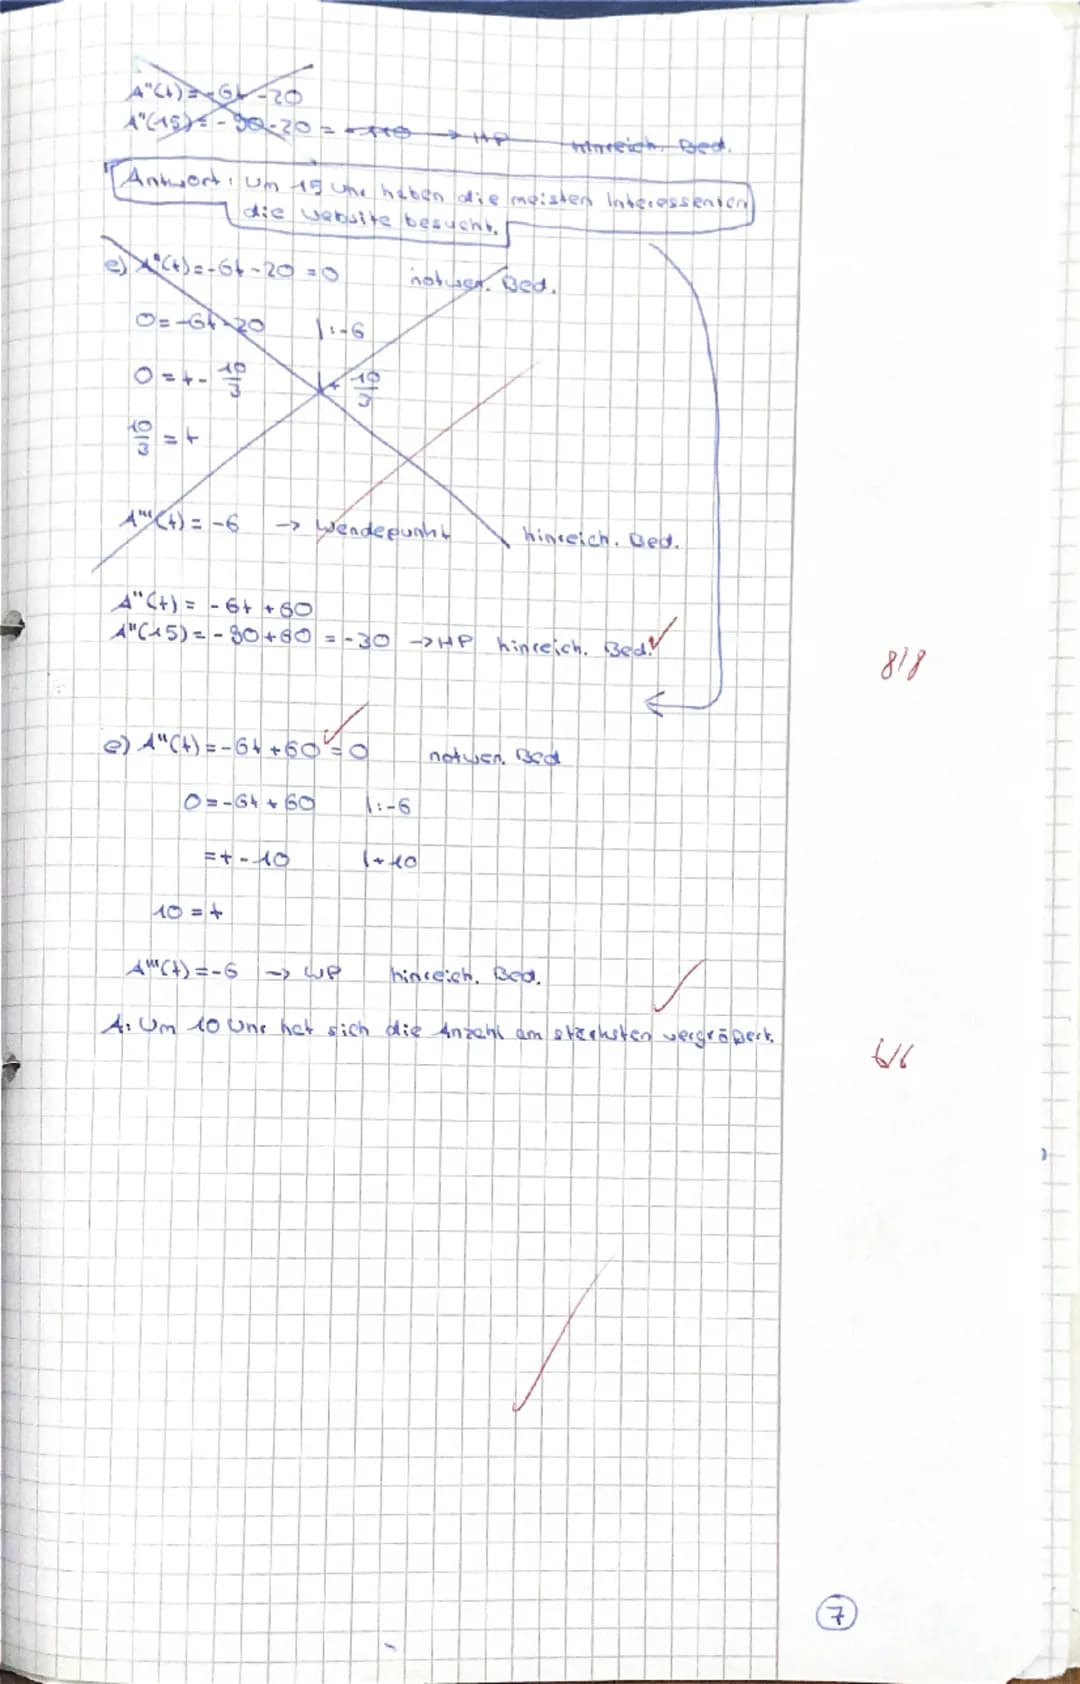 A''(t) = -6t - 20
A''(15) = -90-20 = -110 → HP hinreich. Bed.
Antwort: Um 15 Uhr haben die meisten Interessenten
die Website besucht.
e) A''(t) = -6t - 20 = 0 notwen. Bed.
0 = -6t - 20 |:-6
0 = t - 10/3 |+ 10/3
10/3 = t
A'''(t) = -6 → Wendepunkt hinreich. Bed.
A''(t) = -6t + 60
A''(15) = -90+60 = -30 → HP hinreich. Bed. ✓
8/8
e) A''(t) = -6t + 60 ✓ = 0 notwen. Bed
0 = -6t + 60 |:-6
= t - 10 |+10
10 = t
A'''(t) = -6 → WP hinreich. Bed. ✓
A: Um 10 Uhr hat sich die Anzahl am stärksten vergrößert.
6/6
7